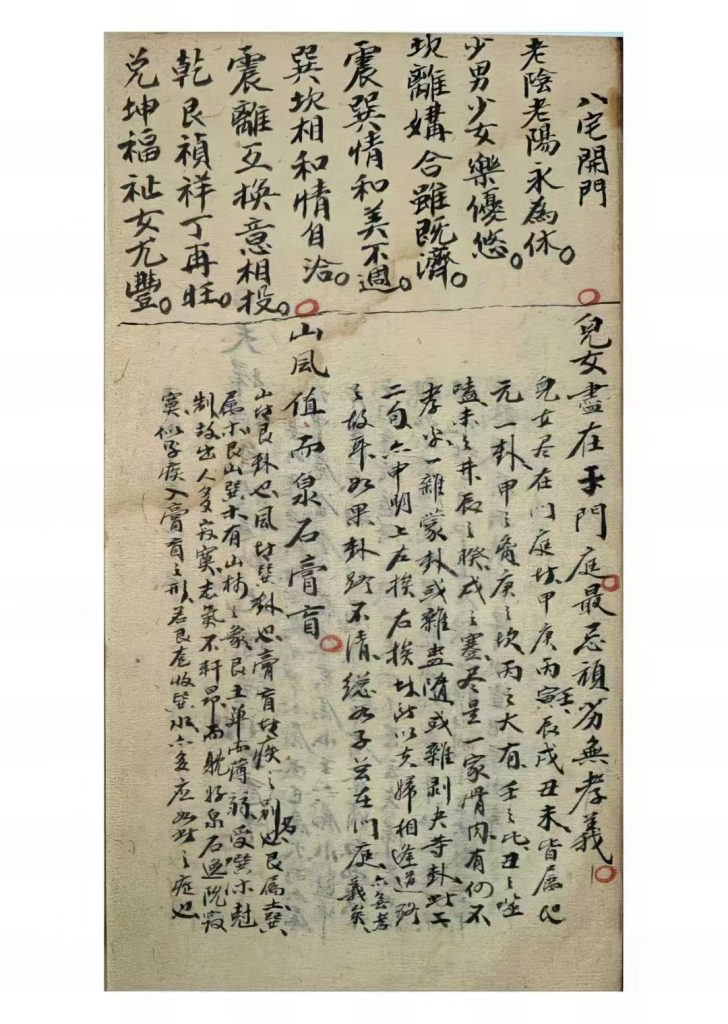 八宅開門
老陰老陽永為休。
少男少女樂優悠。
坎離媾合雖既濟。
震巽情和美不週。
巽坎相和情自洽。
震離互換意相投。
乾艮禎祥丁再旺。
兌坤福祉女尤豐。
兒女盡在于門庭。最忌頑劣無孝義。
兒女尽在门庭 甲庚丙壬寅辰戌丑未皆属比
元一卦甲之 庚之坎丙之大有 壬之比丑之
嗑未之井辰之睽戌之蹇尽是一家骨肉有何不
孝 一雜蒙卦或雜蛊隨或雜剥夬等卦此二
二句 申明上左挨右挨 以夫婦相逢道路
之故耳如果卦路不清縂
在门庭 孝義矣
山風值而泉石膏肓。
山者艮卦也風者巽卦也膏肓者疾之别名也艮属土巽
属木艮山巽木有山林之象艮土单而薄弱受巽木尅
制故出人多寂寞志氣不軒昂而躭好泉石 寂
寞似乎疾入膏肓之形若艮 收巽水 应如此之症也